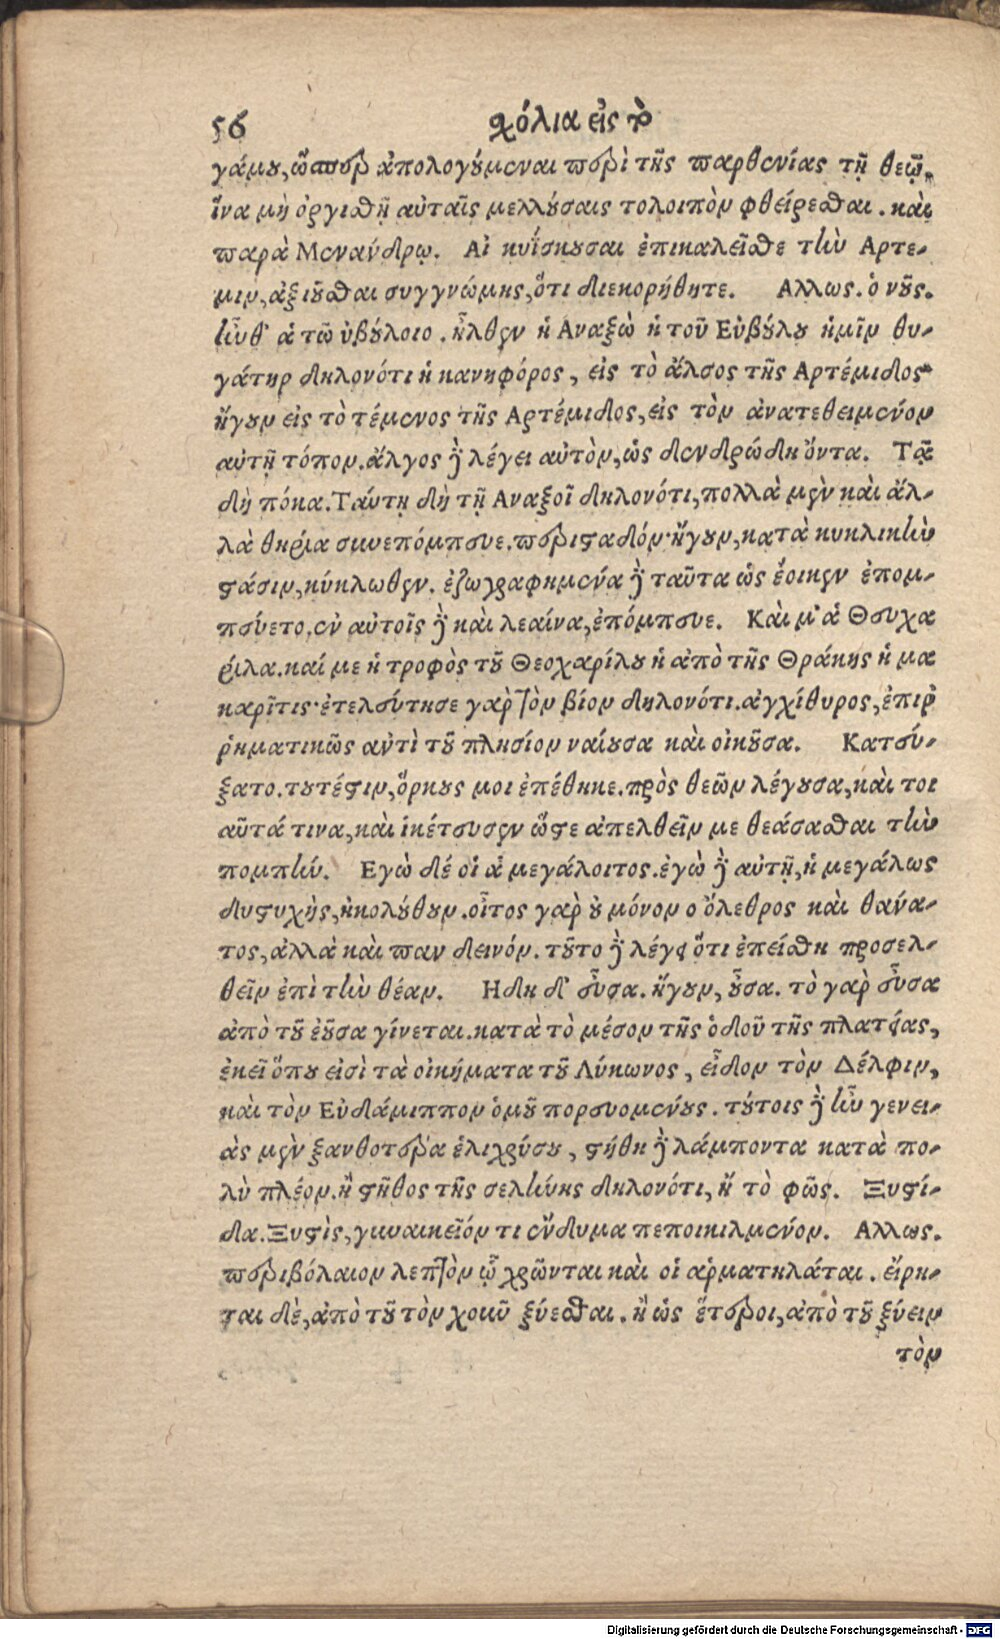 56 χόλια εἰς τὸ
γάμου, ὥσπερ ἀπολογούμεναι περὶ τῆς παρθενίας τῇ θεῷ,
ἵνα μὴ ὀργισθῇ αὐταῖς μελλούσαις τολοιπὸν φθείρεσθαι. καὶ
παρὰ Μενάνδρῳ. Αἱ κυΐσκουσαι ἐπικαλεῖσθε τὴν Αρτε-
μιν, ἀξιοῦσθαι συγγνώμης, ὅτι διεκορήθητε. Αλλως. ὁ νοῦς.
ἦνθ' ἁ τῶ ὑβούλοιο. ἦλθεν ἡ Αναξὼ ἡ τοῦ Εὐβούλου ἡμῖν θυ-
γάτηρ δηλονότι ἡ κανηφόρος, εἰς τὸ ἄλσος τῆς Αρτέμιδος
ἤγουν εἰς τὸ τέμενος τῆς Αρτέμιδος, εἰς τὸν ἀνατεθειμένον
αὐτῇ τόπον. ἄλγος δὲ λέγει αὐτὸν, ὡς δενδρώδη ὄντα. Τᾷ
δὴ πόκα. Ταύτῃ δὴ τῇ Αναξοῖ δηλονότι, πολλὰ μὲν καὶ ἄλ-
λα θηρία συνεπόμπευε. περισαδόν· ἤγουν, κατὰ κυκλικὴν
στάσιν, κύκλωθεν. ἐζωγραφημένα δὲ ταῦτα ὡς ἔοικεν ἐπομ-
πεύετο. ἐν αὐτοῖς δὲ καὶ λεαίνα, ἐπόμπευε. Καὶ μ' ἁ Θευχα
ρίλα. καί με ἡ τροφὸς τοῦ Θεοχαρίλου ἡ ἀπὸ τῆς Θράκης ἡ μα
καρῖτις· ἐτελεύτησε γὰρ τὸν βίον δηλονότι. ἀγχίθυρος, ἐπιρ
ρηματικῶς ἀντὶ τοῦ πλησίον ναίουσα καὶ οἰκοῦσα. Κατεύ-
ξατο. τουτέστιν, ὅρκους μοι ἐπέθηκε. πρὸς θεῶν λέγουσα, καὶ τοι
αῦτά τινα, καὶ ἱκέτευσεν ὥστε ἀπελθεῖν με θεάσασθαι τὴν
πομπήν. Εγὼ δέ οἱ ἁ μεγάλοιτος. ἐγὼ δὲ αὐτῇ, ἡ μεγάλως
δυστυχὴς, ἠκολούθουν. οἶτος γὰρ οὐ μόνον ὁ ὄλεθρος καὶ θάνα-
τος, ἀλλὰ καὶ παν δεινόν. τοῦτο δὲ λέγει ὅτι ἐπείσθη προσελ-
θεῖν ἐπὶ τὴν θέαν. Ηδη δ' εὖσα. ἤγουν, οὖσα. τὸ γὰρ εὖσα
ἀπὸ τοῦ ἐοῦσα γίνεται. κατὰ τὸ μέσον τῆς ὁδοῦ τῆς πλατείας,
ἐκεῖ ὅπου εἰσὶ τὰ οἰκήματα τοῦ Λύκωνος, εἶδον τὸν Δέλφιν,
καὶ τὸν Εὐδάμιππον ὁμοῦ πορευομένους. τούτοις δὲ ἦν γενει-
ὰς μὲν ξανθοτέρα ἑλιχρύσου, στήθη δὲ λάμποντα κατὰ πο-
λὺ πλέον. ἢ στῆθος τῆς σελήνης δηλονότι, ἢ τὸ φῶς. Ξυστί-
δα. Ξυστὶς, γυναικεῖόν τι ἔνδυμα πεποικιλμένον. Αλλως.
περιβόλαιον λεπτὸν ᾧ χρῶνται καὶ οἱ ἁρματηλάται. εἴρη-
ται δὲ, ἀπὸ τοῦ τὸν χοῦν ξύεσθαι. ἢ ὡς ἕτεροι, ἀπὸ τοῦ ξύειν
τὸν
Digitalisierung gefördert durch die Deutsche Forschungsgemeinschaft - DFG